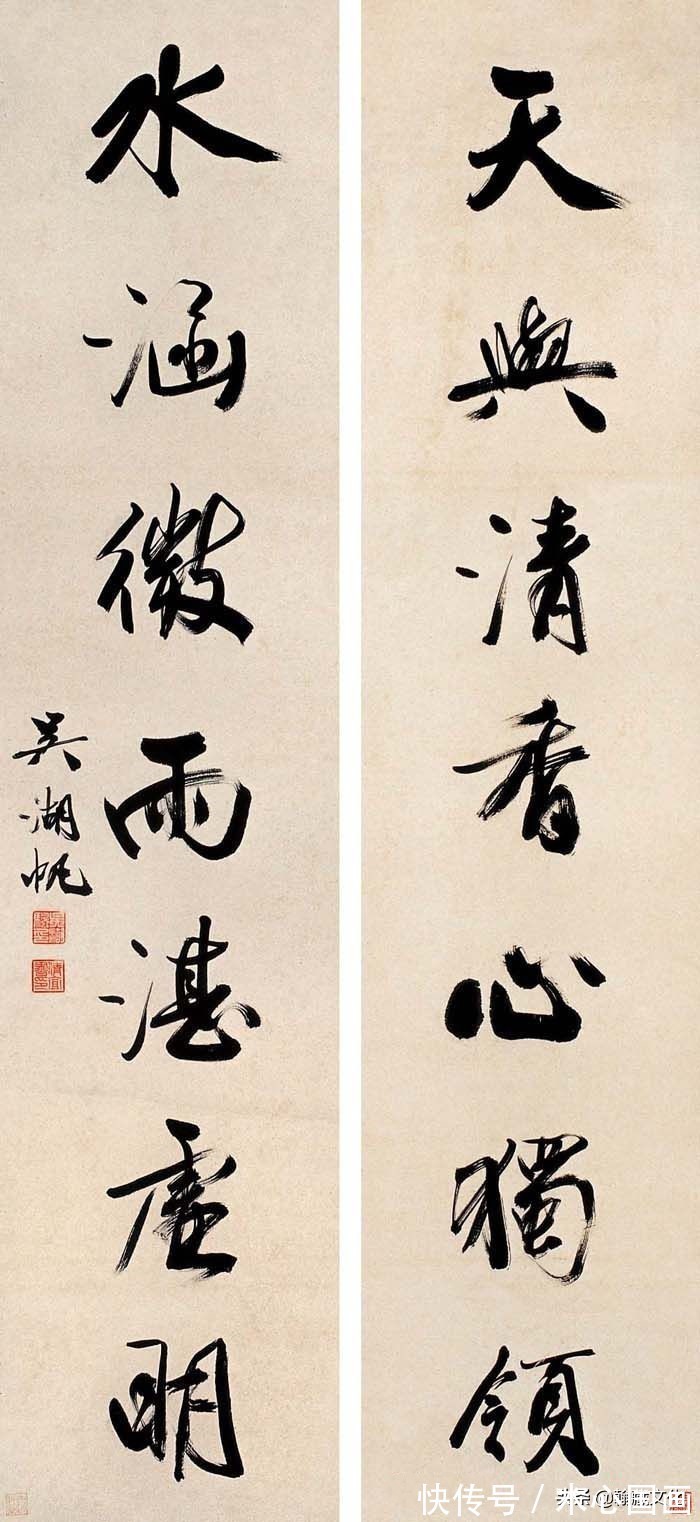 天與清香心獨領
水涵微雨湛虛明
吳湖帆
快传号/米心国画